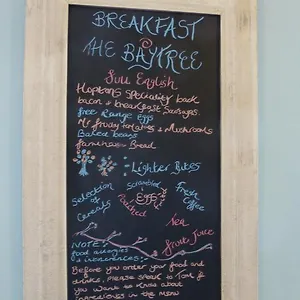 BREAKFAST
@
THE BAYTREE
Full English
Hoptons Speciality back
bacon & breakfast sausages.
free Range Eggs
Mr frudy tomatoes & Mushrooms
Baked beans
farmhouse Bread
:- Lighter Bites
Selection of Cereals
Scrambled
Eggs
Poached
Fresh Coffee
Tea
fruit Juice
NOTE:
food allergies
& intolerances:
Before you order your food and
drinks, please speak to
if
you want to know about
ingredients in the menu